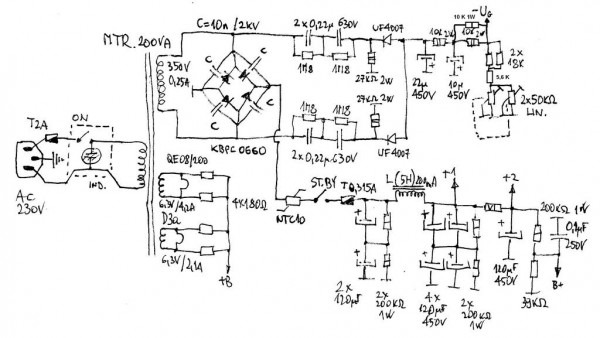 C=10n/2kV
2x0,22µ 630V
UF4007
-UG
10K 1W
10K 2W
2x
18K
5.6K
2x50KΩ
LIN.
MTR. 200VA
350V
0,25A
C
C
C
C
1M8
1M8
27KΩ 2W
22µ
450V
10µ
450V
KBPC 0660
1M8
1M8
27KΩ 2W
2x0,22µ 630V
UF4007
T2A
ON
IND.
AC
230V
QE08/200
6,3V/4,2A
D3a
6,3V/2,1A
4x180Ω
+B
NTC10
ST.BY
T0,315A
L(5H) 200mA
+1
+2
2x
120µF
2x
200KΩ
1W
4x
120µF
450V
2x
200KΩ
1W
120µF
450V
200KΩ 1W
0,1µF
250V
39KΩ
B+